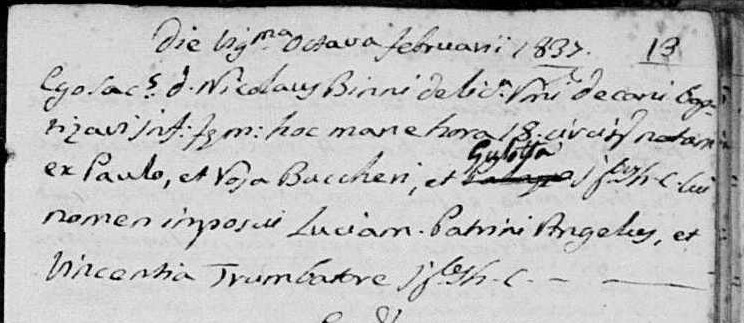 Die Vig.ma Octava februarii 1837. 13
Ego Sac.s d. Nicolaus Binni de lic.a Vmi Decani Bap-
tizavi inf: hoc mane hora 18. circiter natam
Gulotta
ex Paulo, et Rosa Buccheri, et jug. h. c. cui
nomen imposui Luciam. Patrini Angelus, et
Vincentia Trumbatore jug. h. c. -